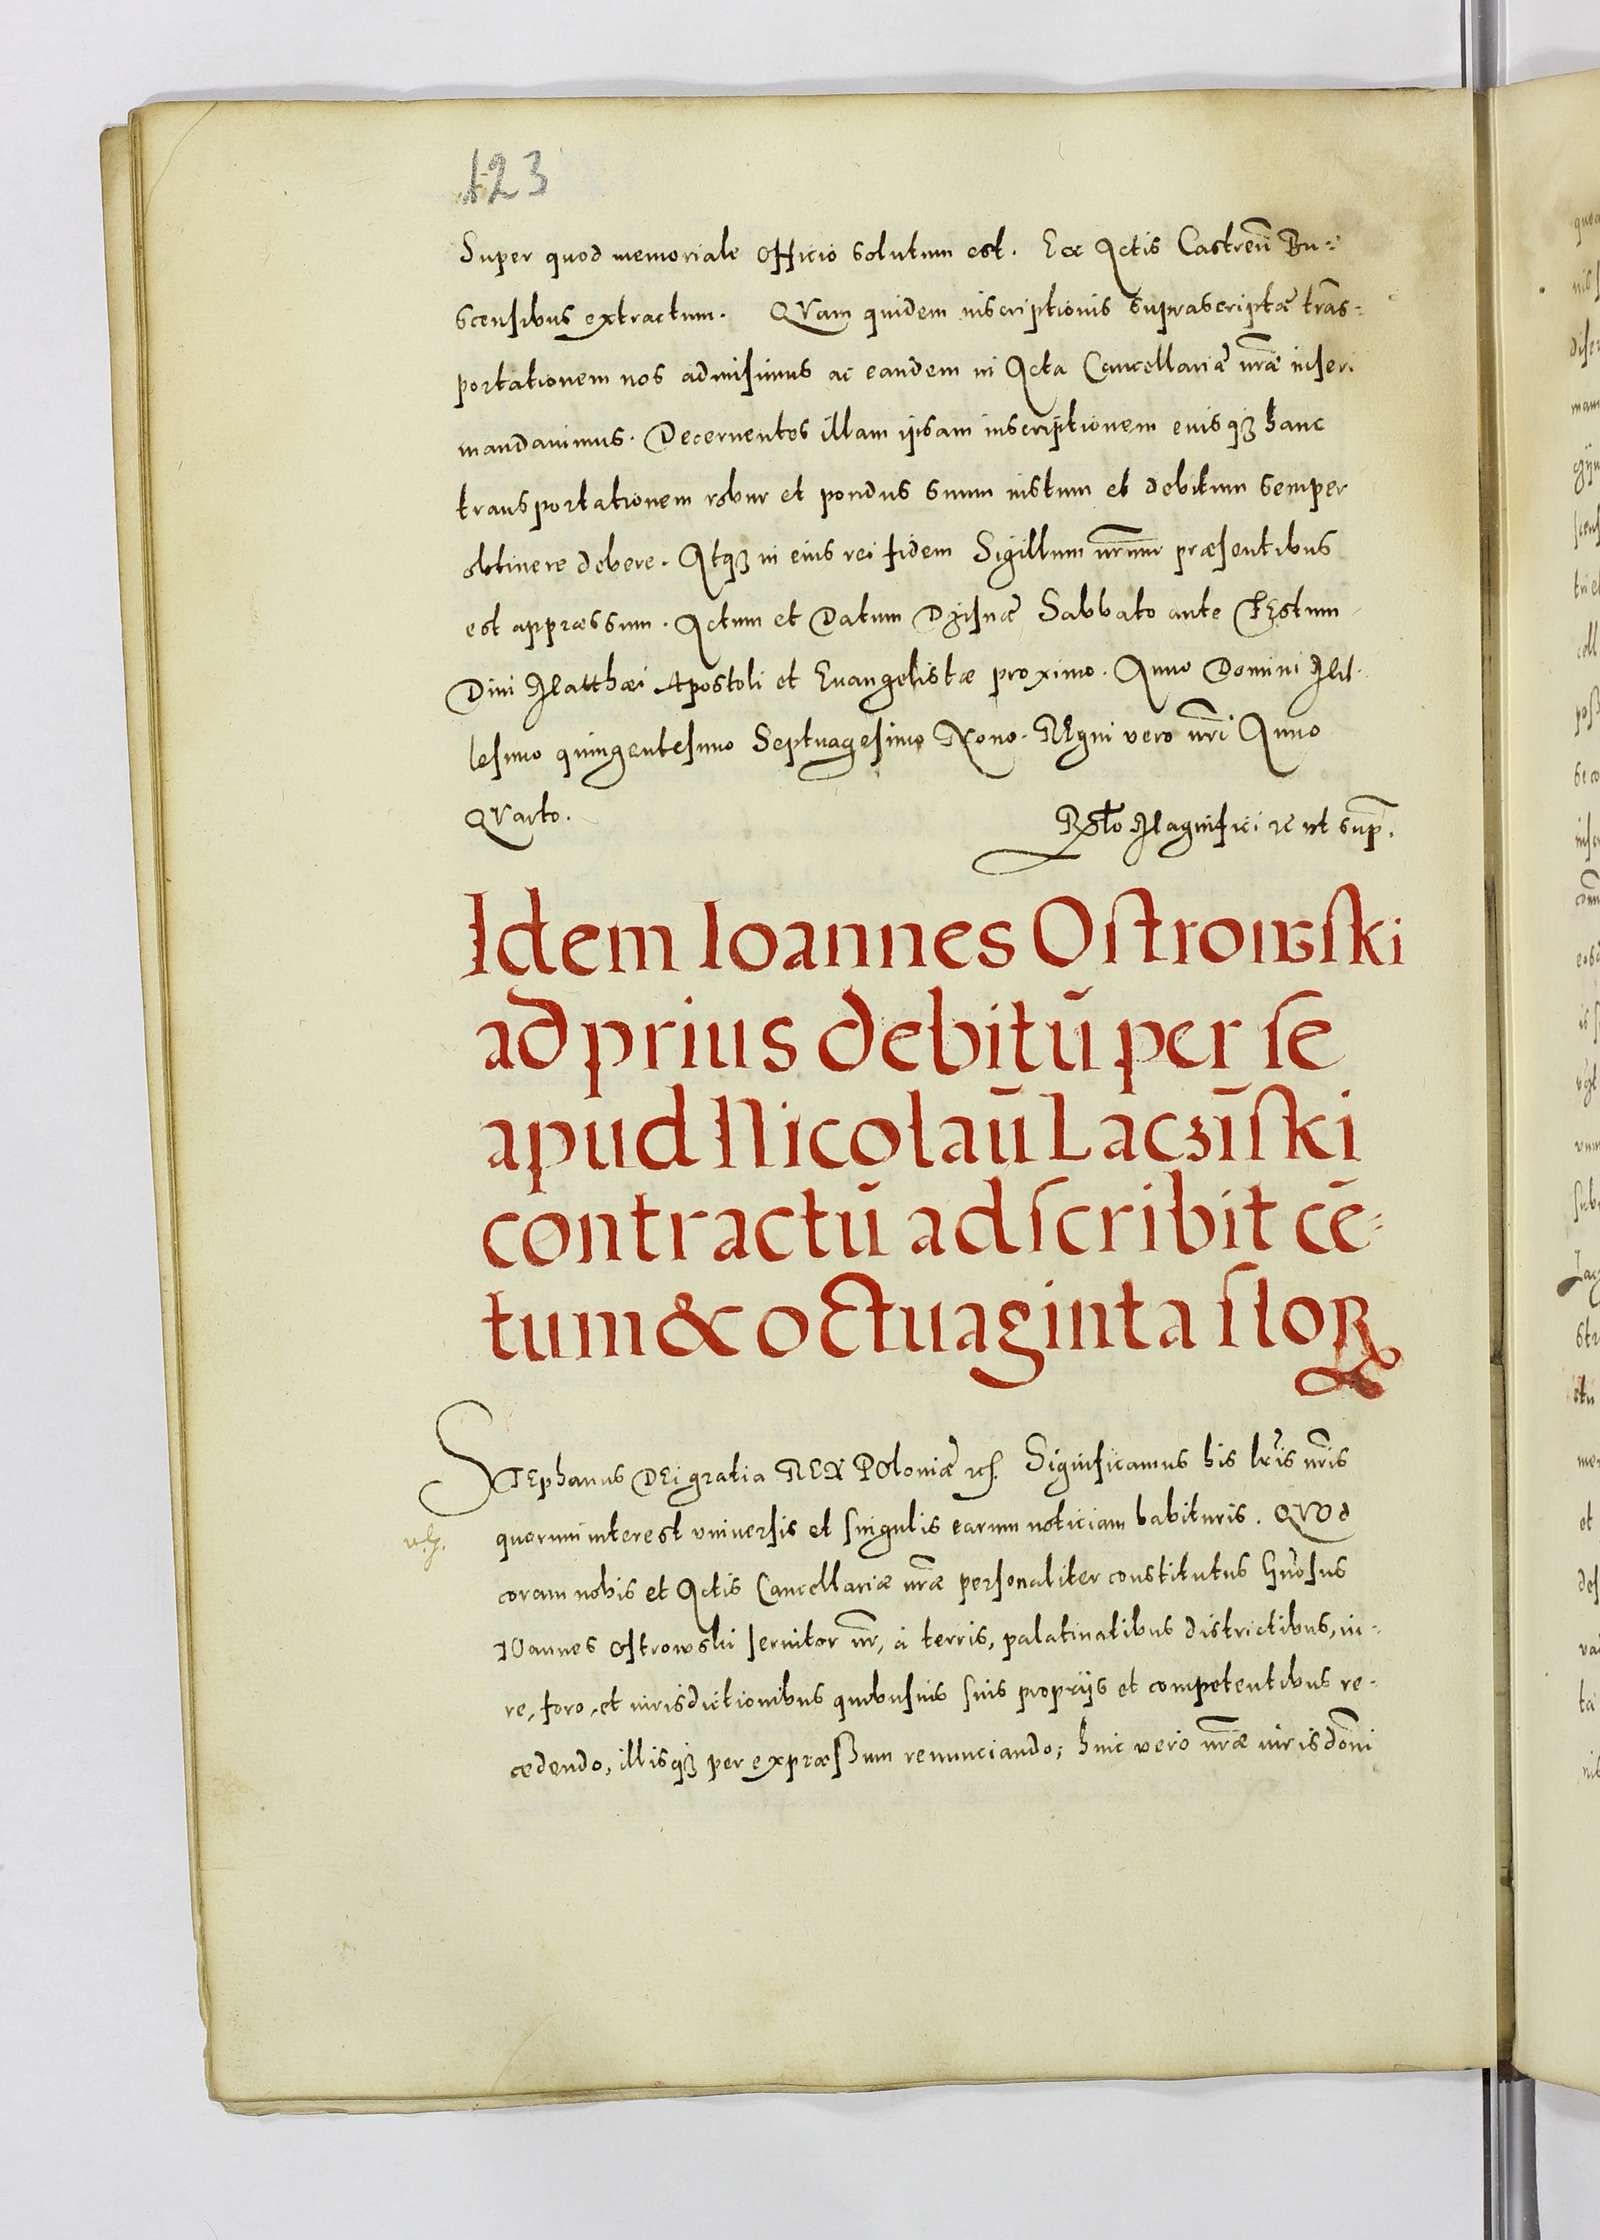 123
Super quod memoriale officio solutum est. Ex Actis Castreñ Bu=
scensibus extractum. QVam quidem inscriptionis suprascriptæ trãs=
portationem nos admisimus ac eandem in Acta Cancellariæ nr̃æ inseri
mandauimus. Decernentes illam ipsam inscriptionem eiusqꝫ hanc
transportationem robur et pondus suum iustum et debitum semper
obtinere debere. Atqꝫ in eius rei fidem Sigillum nr̃um præsentibus
est appræssum. Actum et Datum Dzisnæ Sabbato ante FEstum
Diui Matthæi Apostoli et Euangelistæ proximo. Anno Domini Mil-
lesimo quingentesimo Septuagesimo Nono. REgni vero nr̃i Anno
QVarto.
Rĺto Magnifici ꝛc vt sup̃.
Idem Ioannes Oſtrowſki
ad prius debitũ per ſe
apud Nicolaũ Laczĩſki
contractũ adſcribit cẽ=
tum & octuaginta floꝝ
STEphanus DEi gratia REX POloniæ ꝛcſ. Significamus his lr̃is nr̃is
quorum interest vniuersis et singulis earum noticiam habituris. QVOd
coram nobis et Actis Cancellariæ nr̃æ personaliter constitutus Gñosus
IOannes Ostrowski seruitor nr̃, à terris, palatinatibus districtibus, iu=
re, foro, et iurisdictionibus quibusuis suis proprijs et competentibus re=
cedendo, illisqꝫ per expræßum renunciando; huic vero nr̃æ iurisdõni